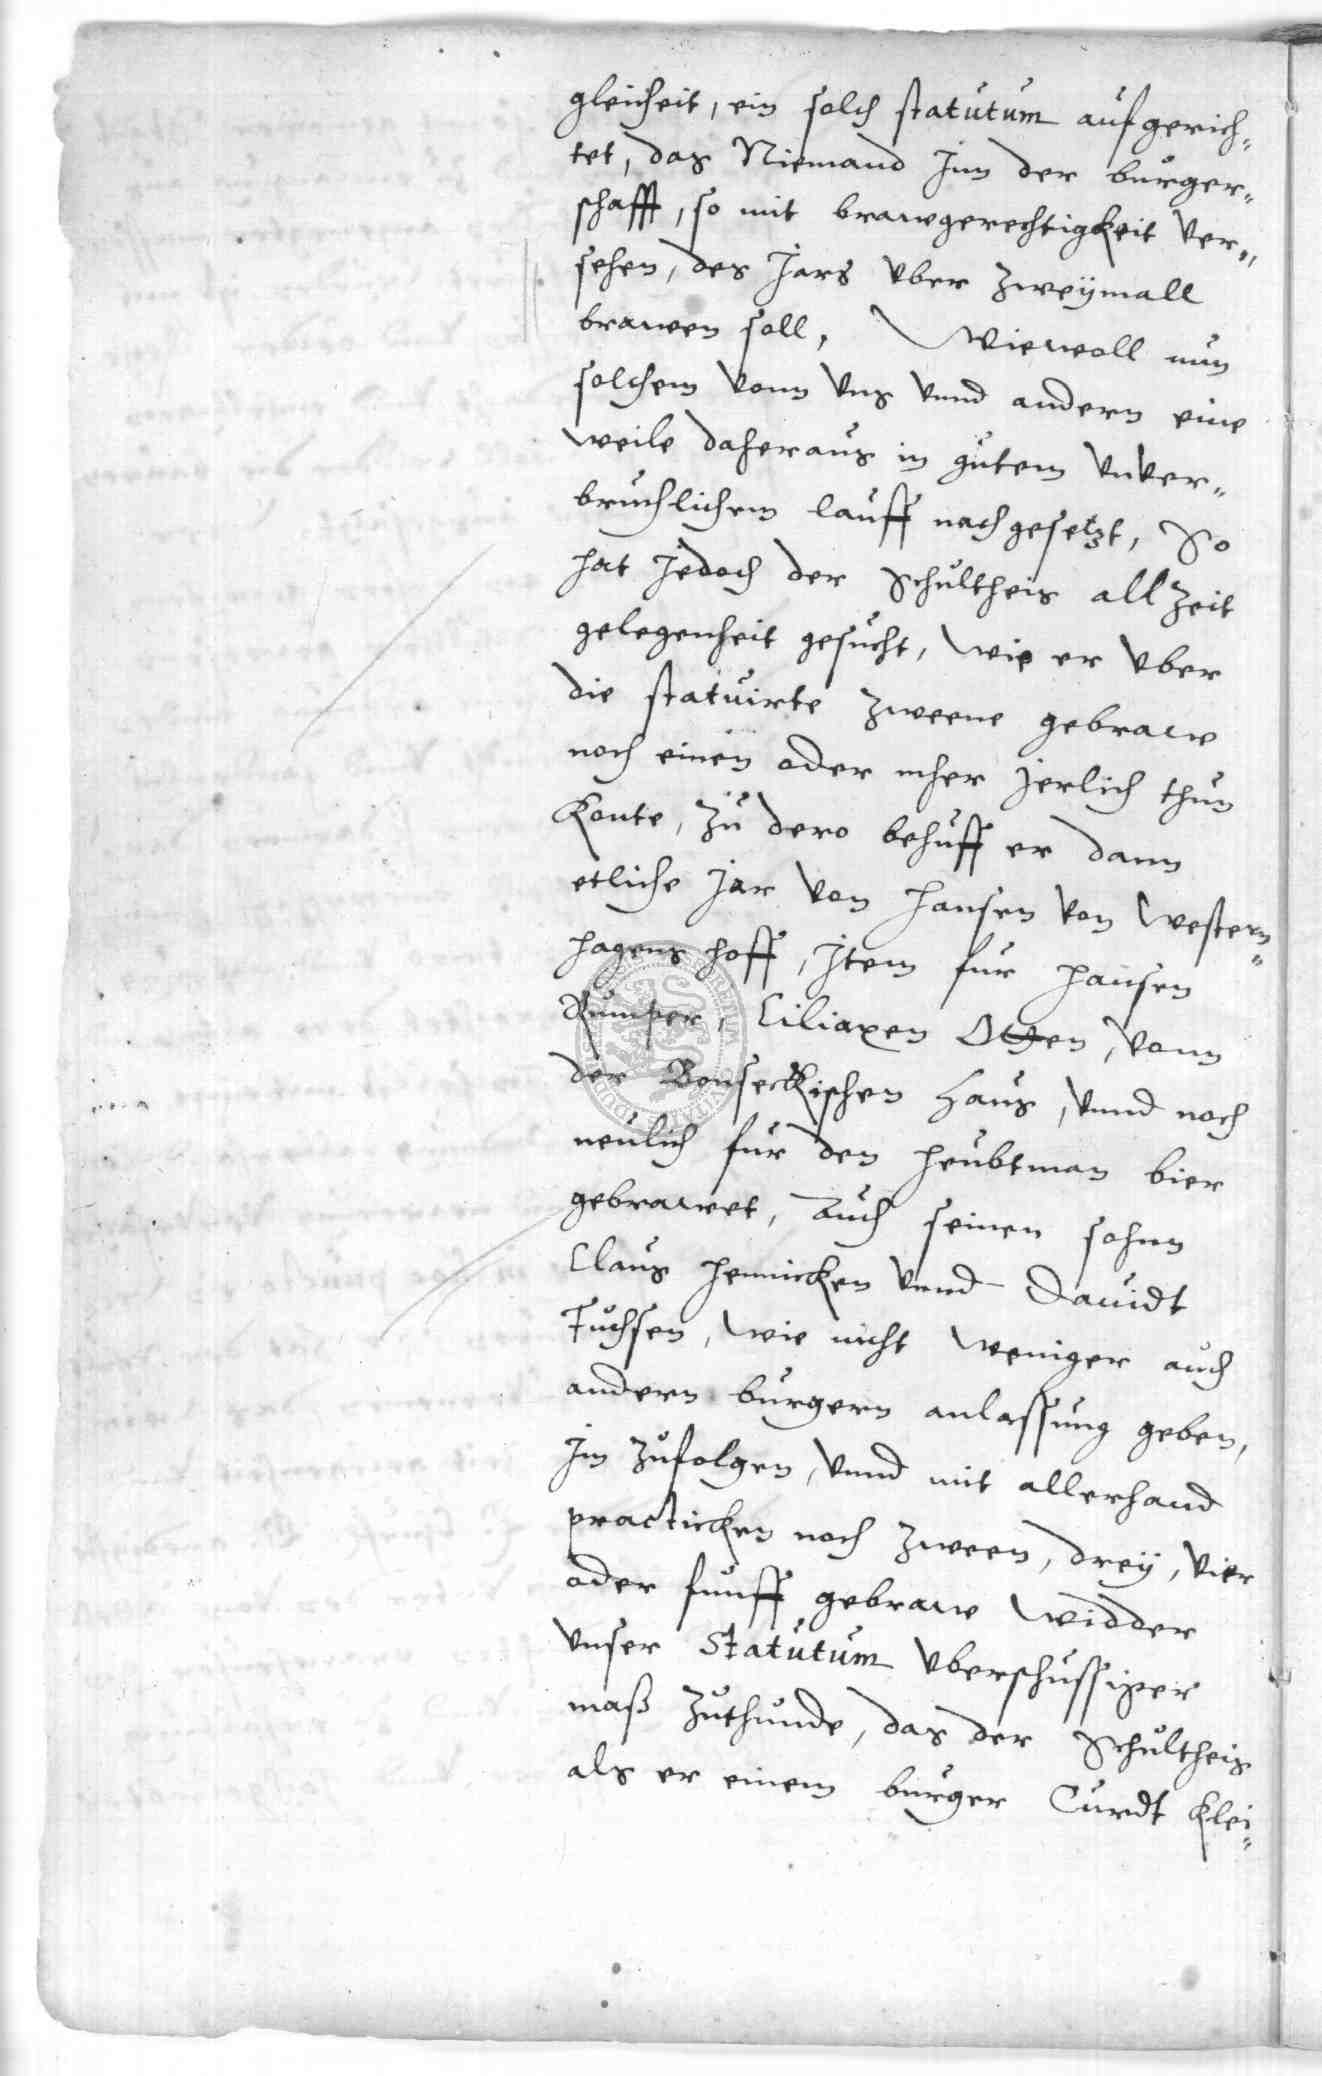 gleicheit, ein solch statutum aufgerich„
tet, das Niemand Jnn der burger„
schafft, so mit brawgerechtigkeit ver„
sehen, des Jars vber zweymall
brawen soll, Wiewoll nun
solchem vonn vns vnnd andern eine
weile daheraus in gutem vnver„
bruchlichem lauff nachgesetzt, So
hat Jedoch der Schultheis allzeit
gelegenheit gesucht, wie er vber
die statuirte zweene gebraw
noch einen oder mher Jerlich thun
konte, zu dero behuff er dann
etliche Jar von Hansen von Western„
hagens hoff, Jtem fur Hansen
Rumper, Ciliaxen Otten, vonn
der Bonseckischen Haus, vnnd noch
neulich fur den Heubtman bier
gebrawet, Auch seinen sohnn
Claus Hennicken vnnd Dauidt
Fuchsen, wie nicht weniger auch
andern burgern anlassung geben,
Jm zufolgen, vnnd mit allerhand
practicken noch zween, drey, vier
oder funff gebraw widder
vnser Statutum vberschussiger
maß zuthunde, das der Schultheis
als er einem burger Curdt Klei„